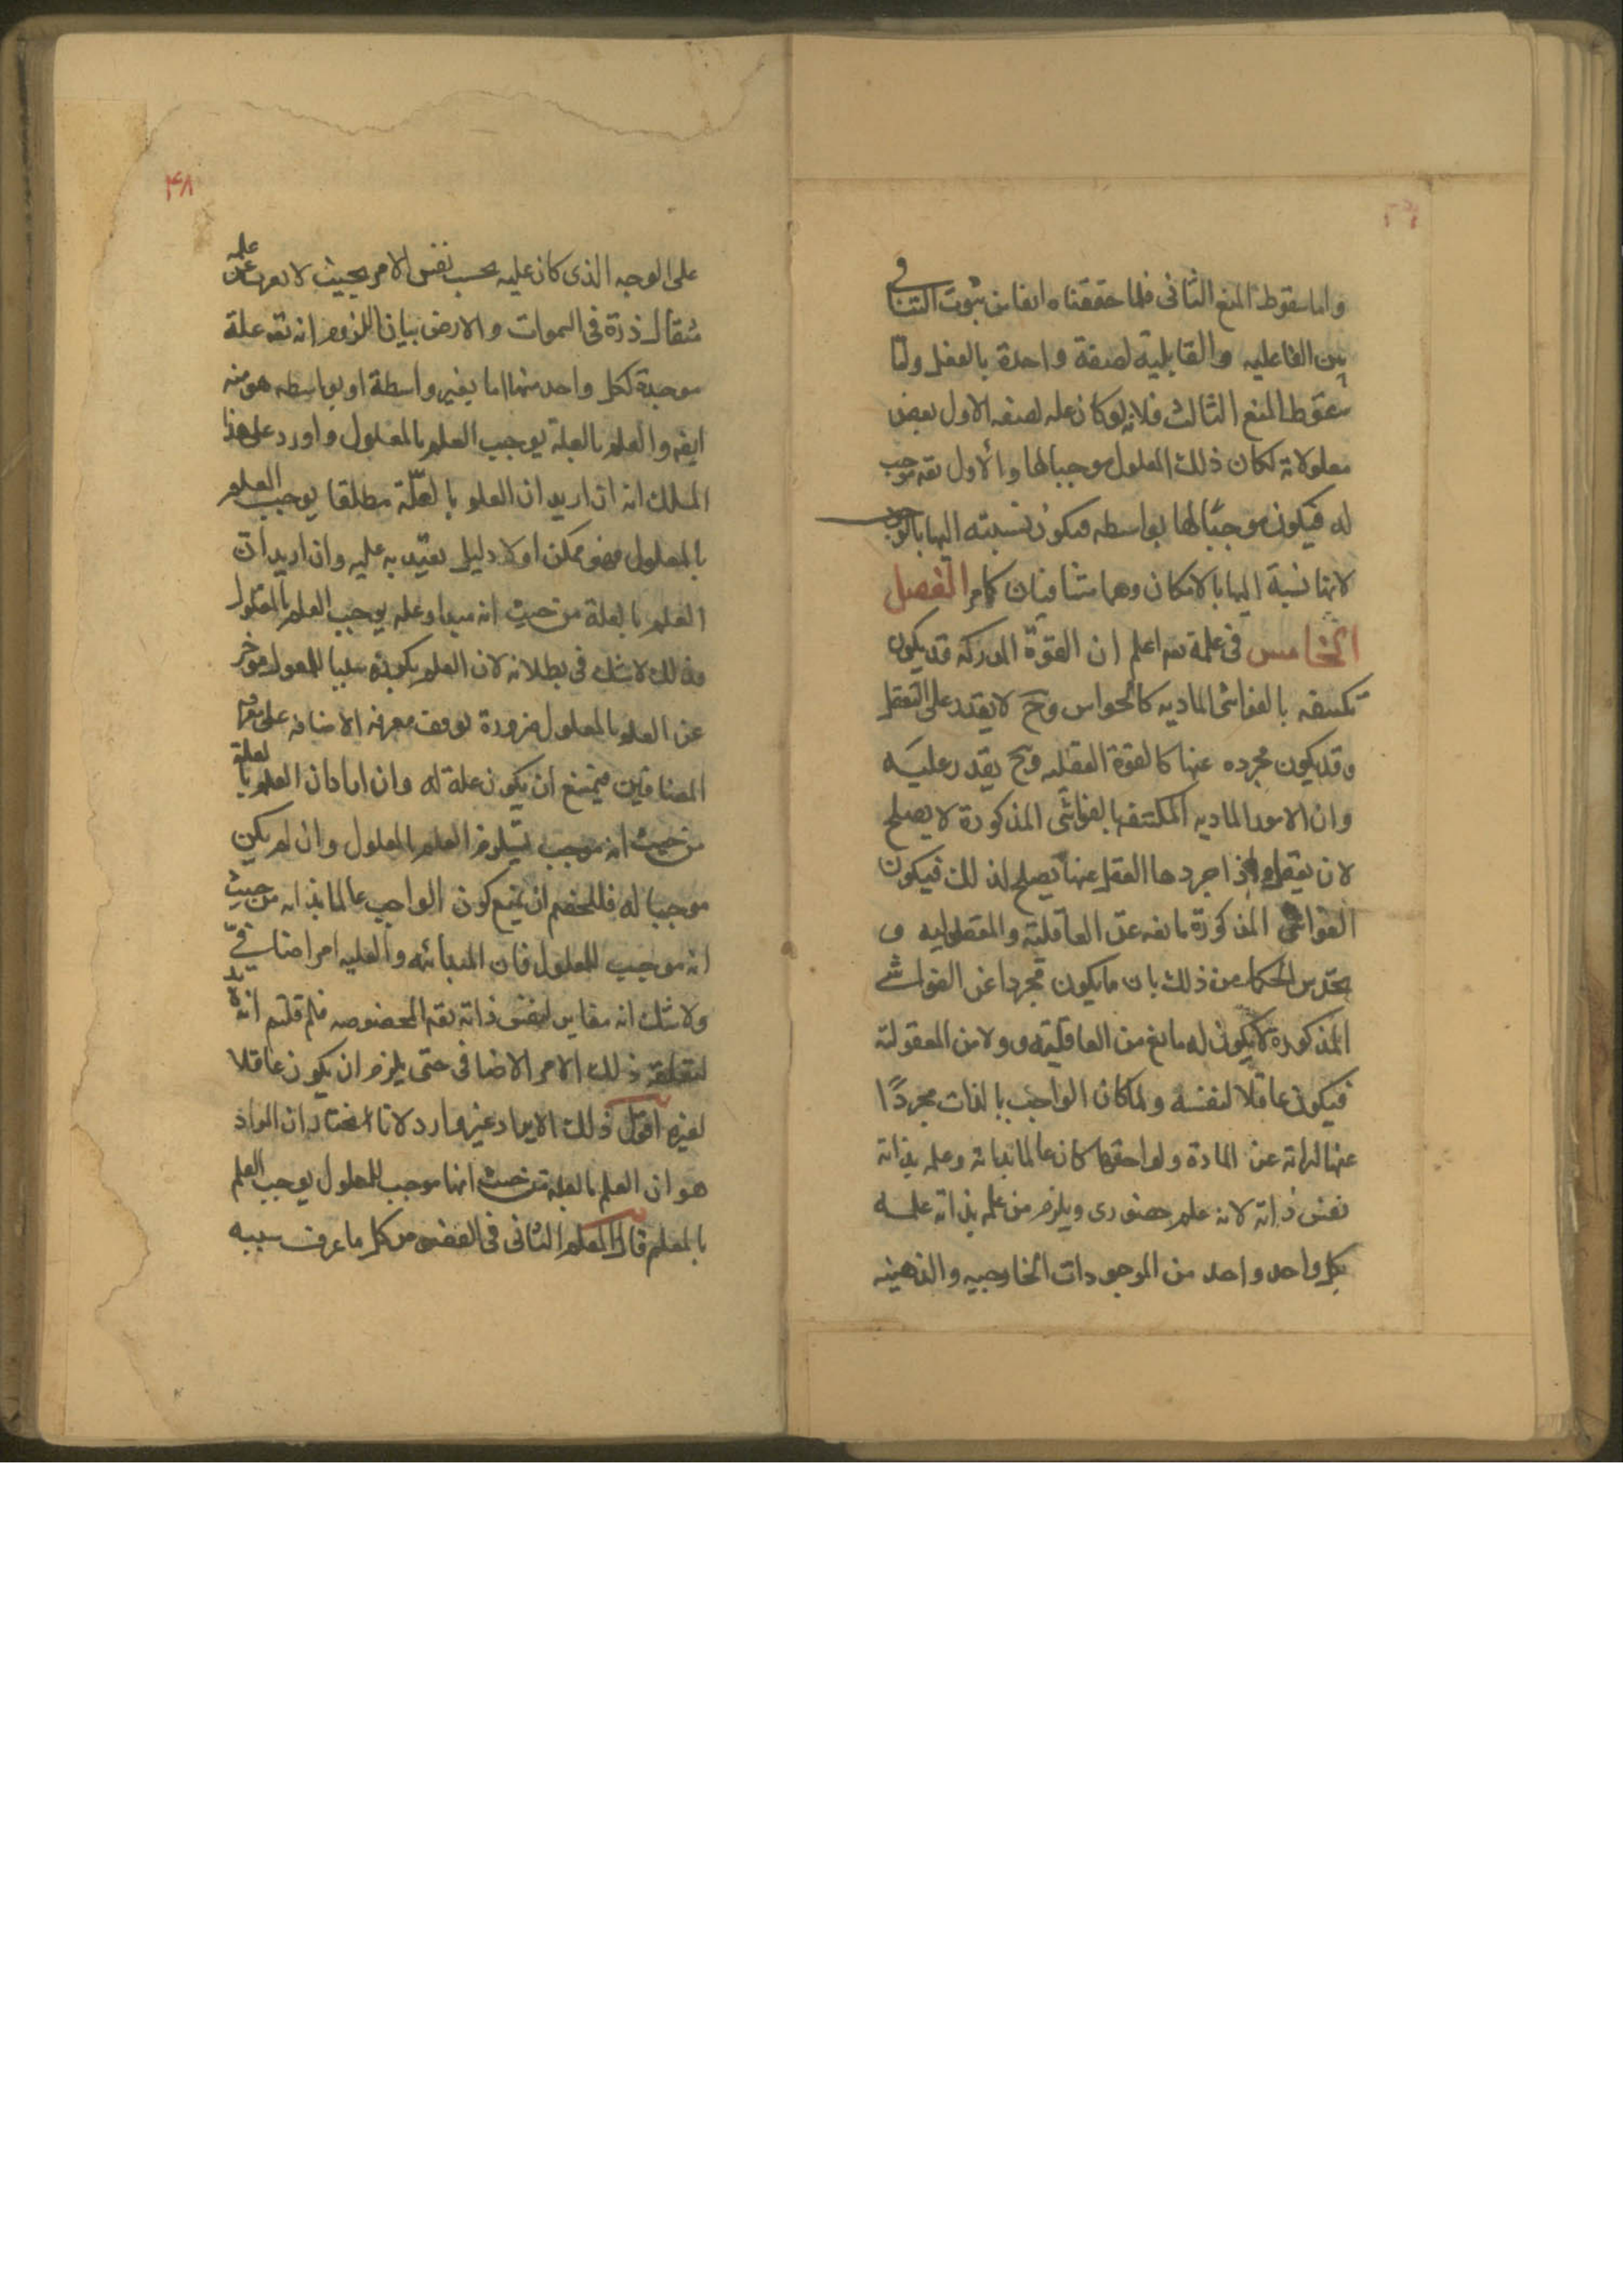 واما سقوط المنع الثانى فلما حققناه انفا من ثبوت التنافى
بين الفاعليه والقابلية لصفة واحدة بالفعل واما
سقوط المنع الثالث فلانه لو كان عله لصفه الاول بعض
معلولاته لكان ذلك المعلول موجبا لها والأول تعه موجب
له فيكون موجبًا لها بواسطه فيكون نسبته اليها بالوجوب
لانها نسبة اليها بالامكان وهما متنافيان كما مر الفصل
الخامس فى علمه تعه اعلم ان القوّة المدركه قد يكون
تكتنفه بالغواشى الماديه كالحواس وح لا يقدر على التعقل
وقد يكون مجرده عنها كالقوة العقليه وح يقدر عليه
وان الامور الماديه المكتنفه بالغواشى المذكورة لا يصلح
لان يعقل واذا جردها العقل عنها تصلح لذلك فيكون
الغواشى المذكورة مانعه عن العاقلية والمعقوليه و
يحدس الحكما من ذلك بان ما يكون مجردا عن الغواشى
المذكورة لا يكون له مانع من العاقلية و ولا من المعقولية
فيكون عاقلا لنفسه ولما كان الواجب بالذات مجردًا
عنها لبراته عن المادة ولواحقها كان عالما بذاته وعلمه بذاته
نفس ذاته لانه علم حضورى ويلزم من علمه بذاته علمه
بكل واحد واحد من الموجودات الخارجيه والذهنيه
۴۸
على الوجه الذى كان عليه بحسب نفس الامر بحيث لا يعزب عن علمه
مثقال ذرة فى السموات والارض بيان اللزوم انه تعه علة
موجبة لكل واحد منها اما بغير واسطة او بواسطه هو منه
ايضه والعلم بالعلة يوجب العلم بالمعلول واورد على هذا
المسلك انه ان اريد ان العلم بالعلّة مطلقا يوجب العلم
بالمعلول فهو ممكن اولا دليل يعتد به عليه وان اريد ان
العلم بالعلة من حيث انه مبدا وعله يوجب العلم بالمعلول
فذلك لا شك فى بطلانه لان العلم بكونه سببا للمعلول موخر
عن العلم بالمعلول ضرورة توقف معرفه الاضافه على معرفه
المضافين فيمتنع ان يكون علة له وان ارادان العلم بالعلة
من حيث انه موجب يستلزم العلم بالمعلول وان لم يكن
موجبا له فللخصم ان يمنع كون الواجب عالما بذاته من حيث
انه موجب للمعلول فان المبدائه والعليه امر اضافىّ
ولا شك انه مغاير لنفس ذاته تعه المخصوصه فلم قلتم انه لا بد
لتعلقه ذلك الامر الاضافى حتى يلزم ان يكون عاقلا
لغيره اقول ذلك الايراد غير وارد لانا نختار ان المراد
هو ان العلم بالعلة من حيث انها موجب للمعلول يوجب العلم
بالمعلم قال المعلم الثانى فى الفصوص كل ما عرف سببه